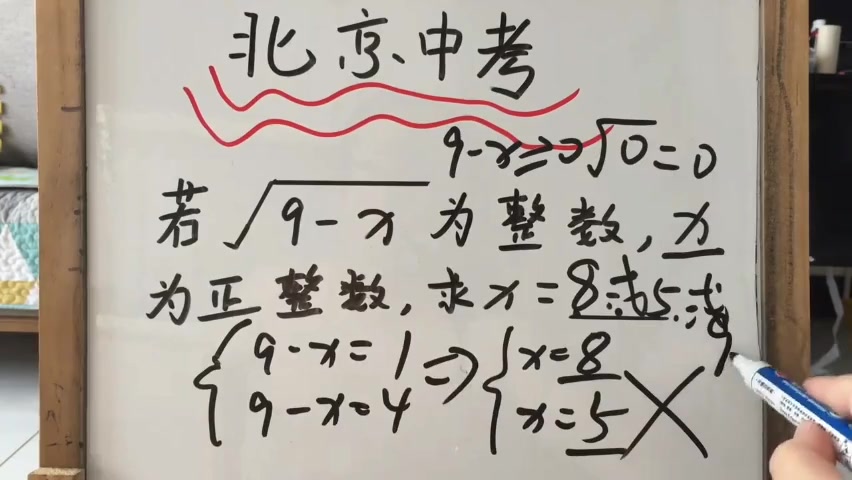 北京中考
9-x≥0 √0=0
若√9-x 为整数,x
为正整数,求x=8或5或9
9-x=1 ⇒ x=8
9-x=4 x=5